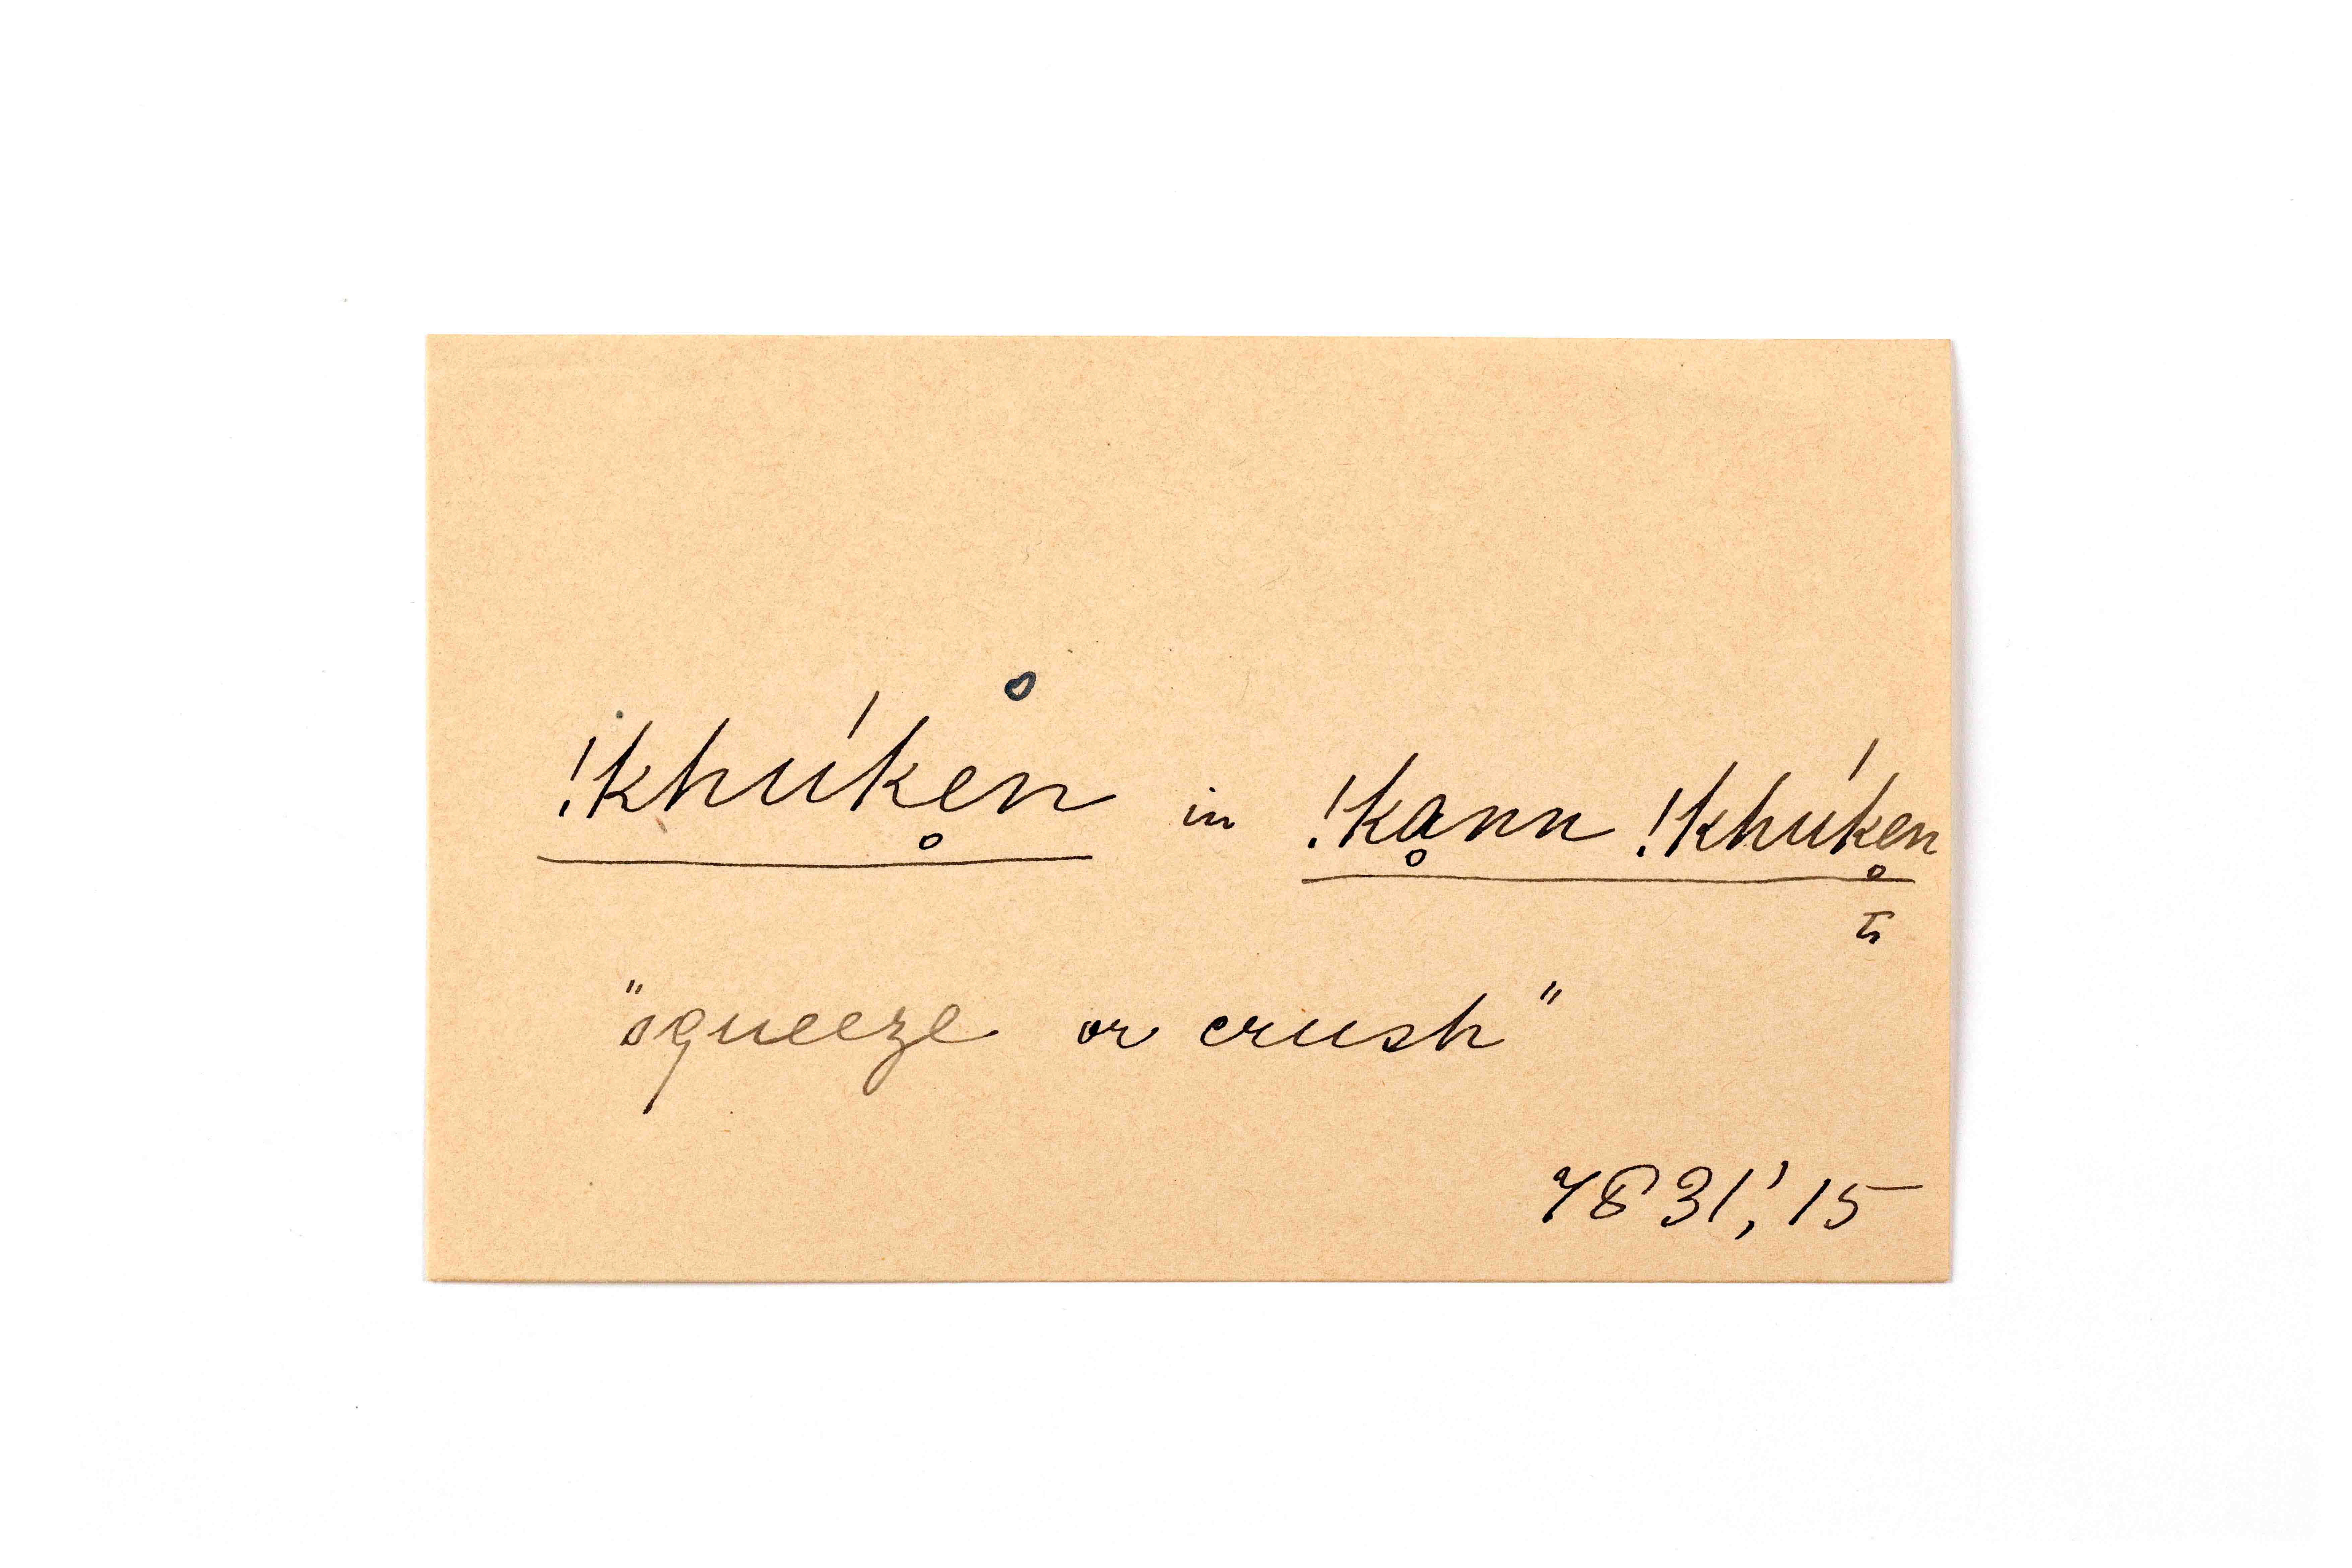 !khúke̥n in !kḁnn !khúke̥n
ti
"squeeze or crush"
7831,' 15